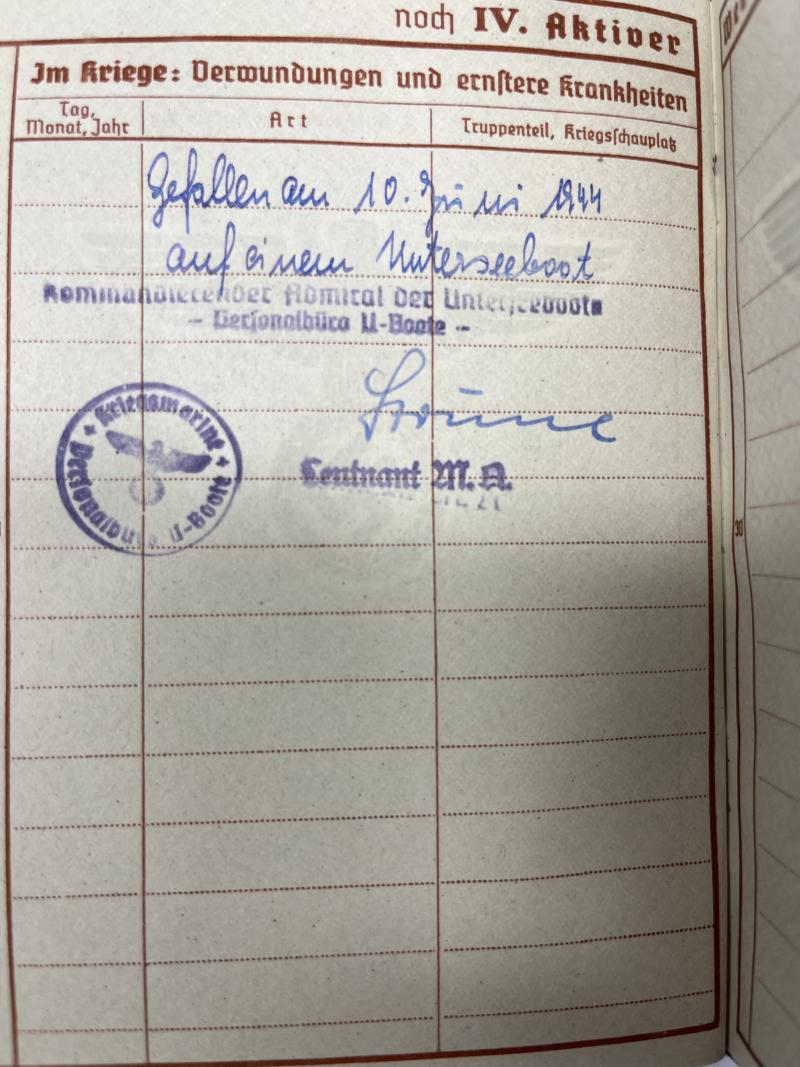 noch IV. Aktiver
Im Kriege: Verwundungen und ernstere Krankheiten
Tag, Monat, Jahr
Art
Truppenteil, Kriegsschauplatz
Gefallen am 10. Juni 1944
auf einem Unterseeboot
Kommandierender Admiral der Unterseeboote
- Personalbüro U-Boote -
Kriegsmarine
Personalbüro U-Boote
Leutnant M.A.
30